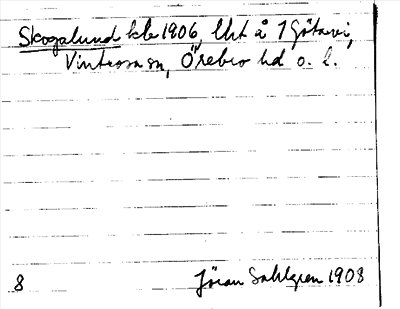 Skogalund kb 1906, Uht å 7 Götavi,
Vintrosa sn, Örebro hd o. l.
8 Jöran Sahlgren 1908